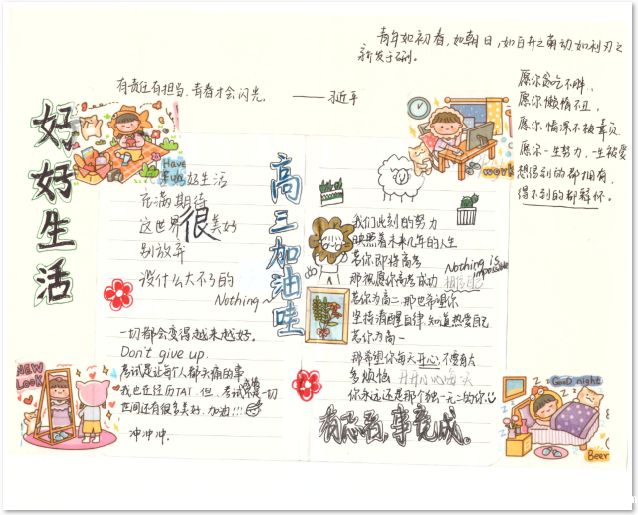 青年如初春,如朝日,如百卉之萌动如利刃之
新发于硎。
有责任有担当,青春才会闪光。 ——习近平
愿你贪吃不胖,
愿你懒惰不丑,
愿你情深不被辜负
愿你一生努力,一生被爱
想得到的都拥有,
得不到的都释怀。
好好生活
Have fun
好好生活
充满期待
这世界很美好
别放弃
没什么大不了的
Nothing~
一切都会变得越来越好。
Don't give up.
考试是让每个人都头痛的事
我也正经历TAT.但,考试不是一切
世间还有很多美好.加油!!!
冲冲冲.
NEW LOOK
高三加油哇
work
我们此刻的努力
映照着未来几年的人生
若你即将高考
Nothing is impossible
那祝愿你高考成功
若你为高二,那也希望你
坚持清醒自律,知道热爱自己
若你为高一
那希望你每天开心,不要有太
多烦恼 开开心心每一天
你永远还是那个独一无二的你
有志者,事竟成。
Good night
Beer